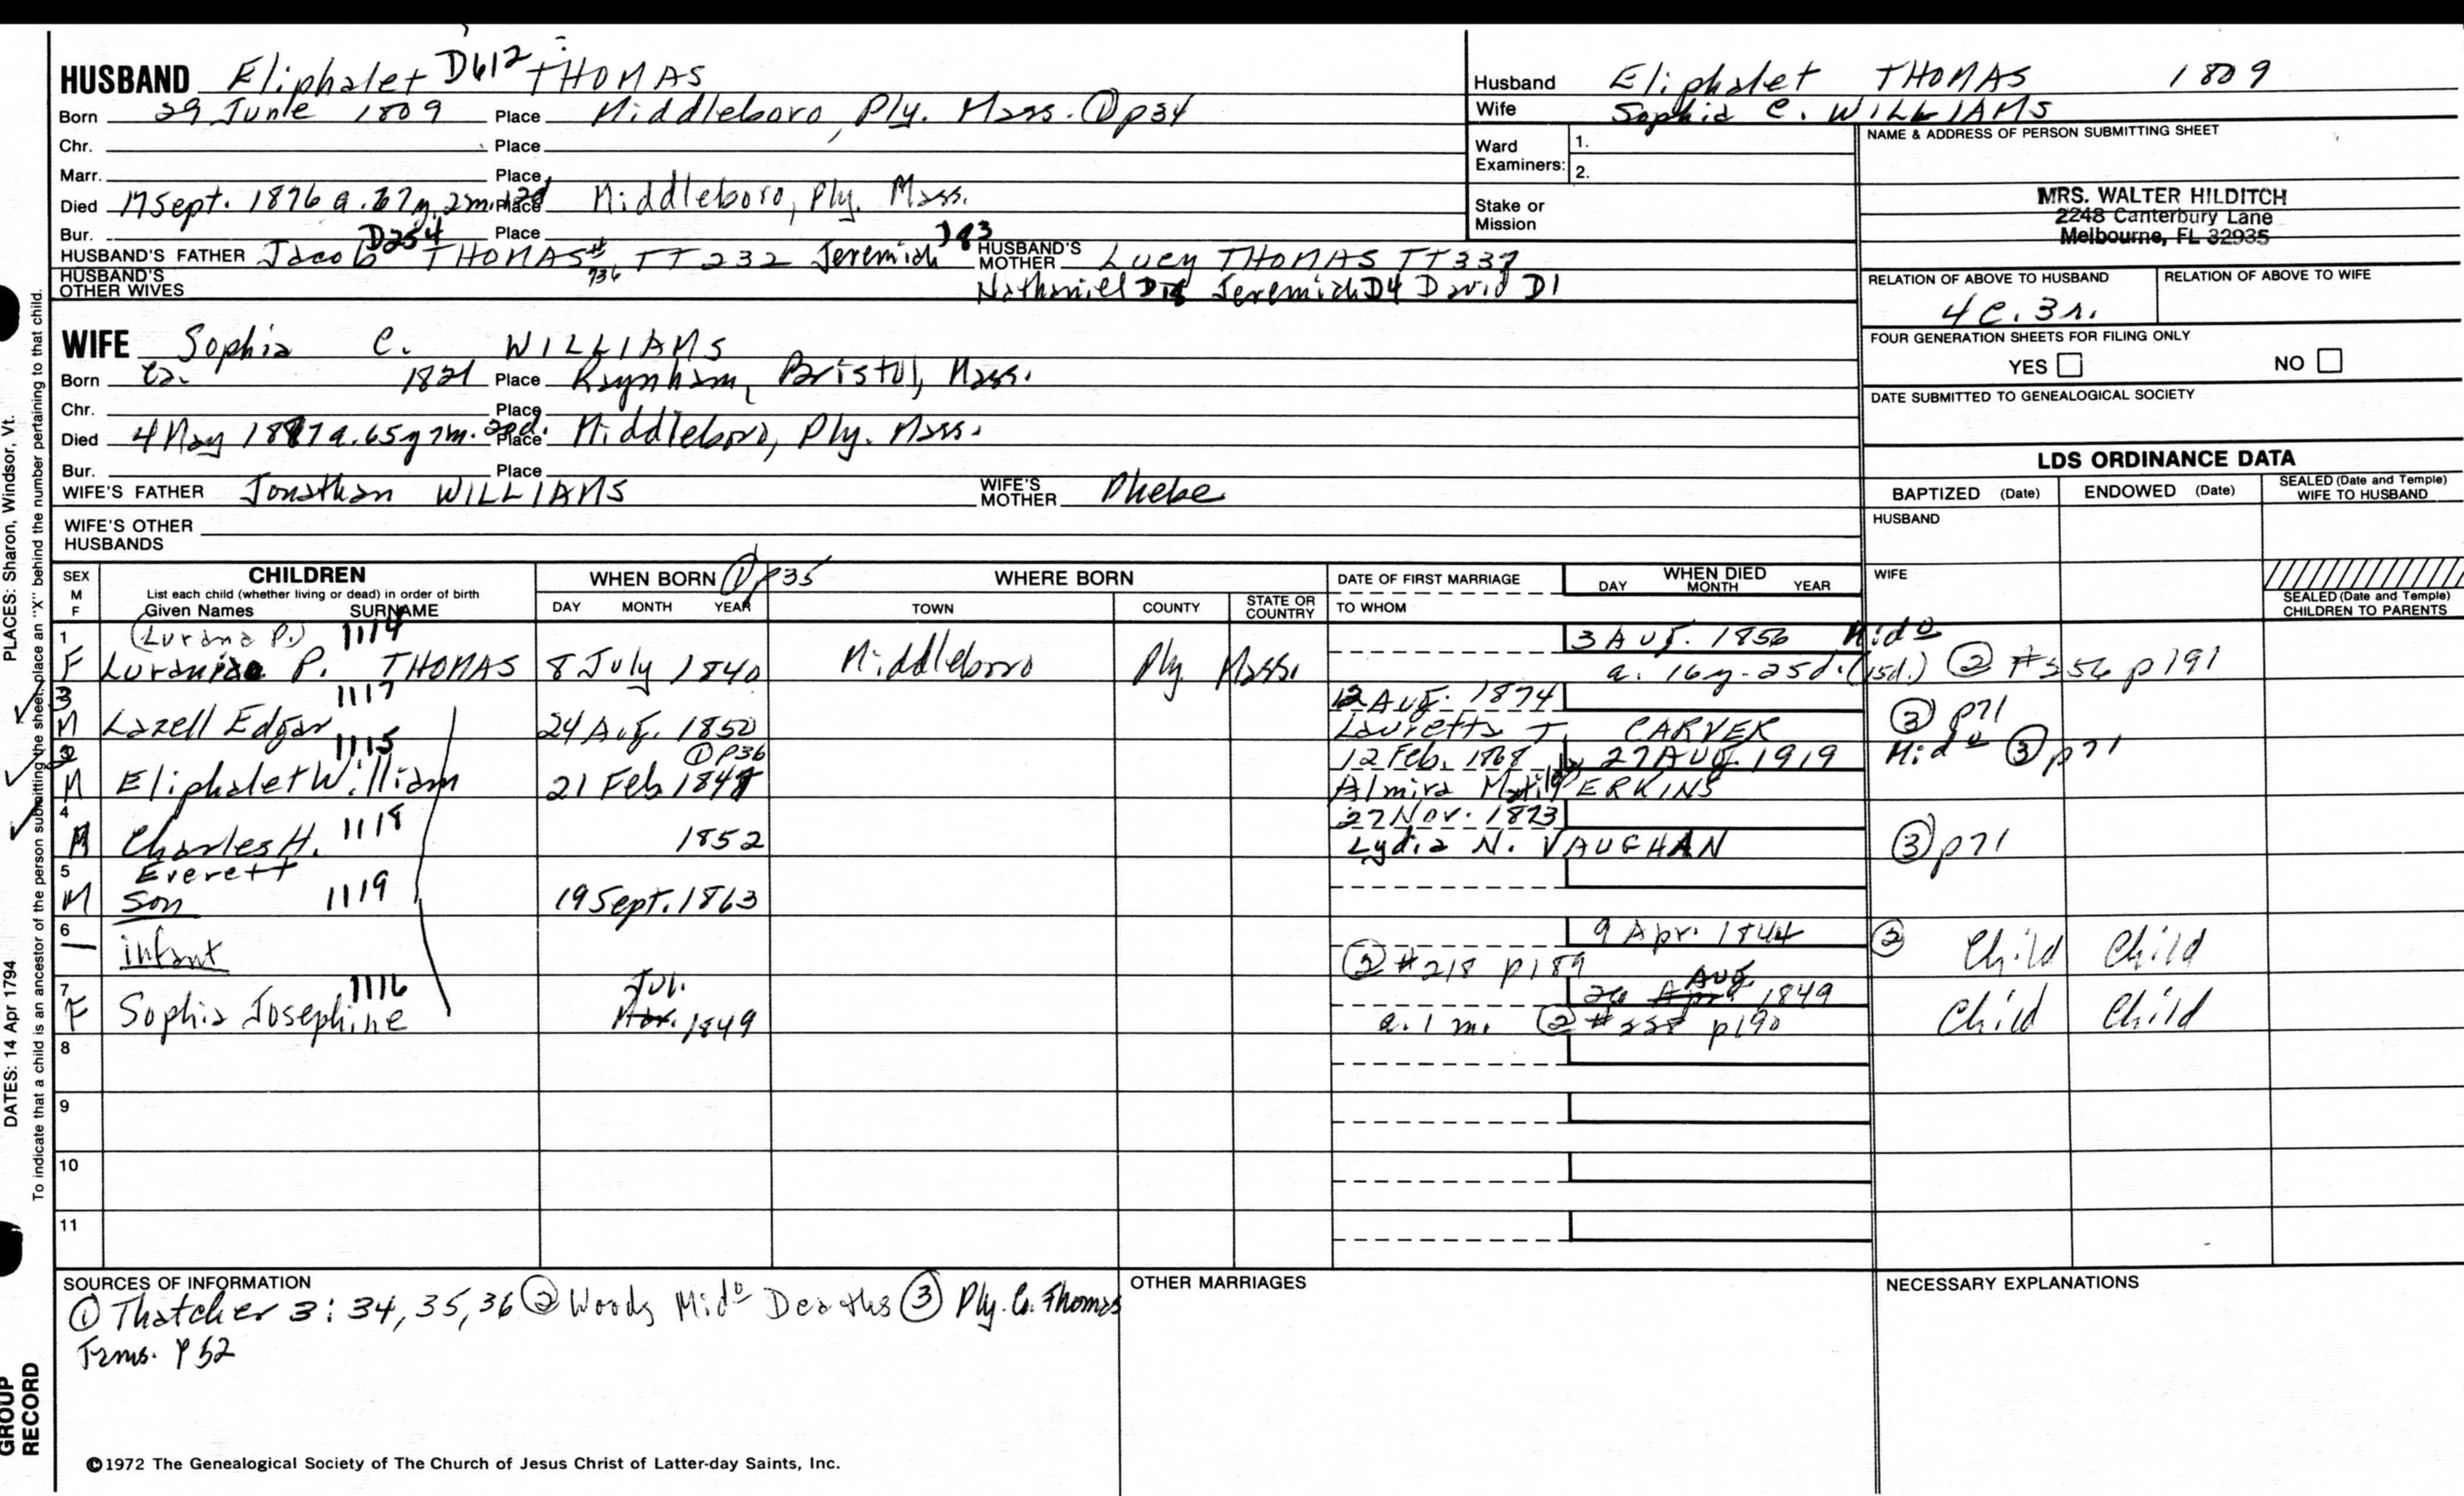 HUSBAND Eliphalet D612 THOMAS
Born 29 June 1809 Place Middleboro, Ply. Mass. ① p34
Chr. Place
Marr. Place
Died 17 Sept. 1876 a. 67y. 2m. Place Middleboro, Ply. Mass.
Bur. Place
HUSBAND'S FATHER Jacob D254 THOMAS # 736 TT 232 Jeremiah D83 HUSBAND'S MOTHER Lucy THOMAS TT337
HUSBAND'S OTHER WIVES Nathaniel Jeremiah D4 David D1
WIFE Sophia C. WILLIAMS
Born ca. 1821 Place Raynham, Bristol, Mass.
Chr. Place
Died 4 May 1887 a. 65y 7m. Place Middleboro, Ply. Mass.
Bur. Place
WIFE'S FATHER Jonathan WILLIAMS WIFE'S MOTHER Phebe
WIFE'S OTHER HUSBANDS
Husband Eliphalet THOMAS 1809
Wife Sophia C. WILLIAMS
Ward Examiners: 1.
2.
Stake or Mission
NAME & ADDRESS OF PERSON SUBMITTING SHEET
MRS. WALTER HILDITCH
2248 Canterbury Lane
Melbourne, FL 32935
RELATION OF ABOVE TO HUSBAND RELATION OF ABOVE TO WIFE
4c. 3r.
FOUR GENERATION SHEETS FOR FILING ONLY
YES NO
DATE SUBMITTED TO GENEALOGICAL SOCIETY
LDS ORDINANCE DATA
BAPTIZED (Date) ENDOWED (Date) SEALED (Date and Temple) WIFE TO HUSBAND
HUSBAND
WIFE
SEALED (Date and Temple) CHILDREN TO PARENTS
SEX M F
CHILDREN
List each child (whether living or dead) in order of birth
Given Names SURNAME
WHEN BORN ① p35
DAY MONTH YEAR
WHERE BORN
TOWN COUNTY STATE OR COUNTRY
DATE OF FIRST MARRIAGE
TO WHOM
WHEN DIED
DAY MONTH YEAR
1 (Lurana P.) 1114 3 Aug. 1856 Mido
F P. THOMAS 8 July 1840 Middleboro Ply Mass. a. 16y. 25d. (15d.) ② #356 p191
3 1117 12 Aug. 1874
M Lazell Edgar 24 Aug. 1850 Lauretta T. CARVER ③ p71
2 1115 ① p36 12 Feb. 1868 27 Aug. 1919 Mido ③ p71
M Eliphalet William 21 Feb 1847 Almira PERKINS
4 1118 27 Nov. 1873
M Charles H. 1852 Lydia N. VAUGHAN ③ p71
5 Everett
M son 1119 19 Sept. 1863
6 9 Apr. 1844 ② Child Child
— infant ② #218 p189
7 1116 Jul. Aug.
F Sophia Josephine Mar. 1849 26 Apr 1849 Child Child
a. 1 m. ② p190
8
9
10
11
SOURCES OF INFORMATION
① Thatcher 3: 34, 35, 36 ② Woods Mido Deaths ③ Ply. Co. Thomas
p52
OTHER MARRIAGES
NECESSARY EXPLANATIONS
©1972 The Genealogical Society of The Church of Jesus Christ of Latter-day Saints, Inc.
PLACES: Sharon, Windsor, Vt.
DATES: 14 Apr 1794
To indicate that a child is an ancestor of the person submitting the sheet, place an "X" behind the number pertaining to that child.
GROUP
RECORD